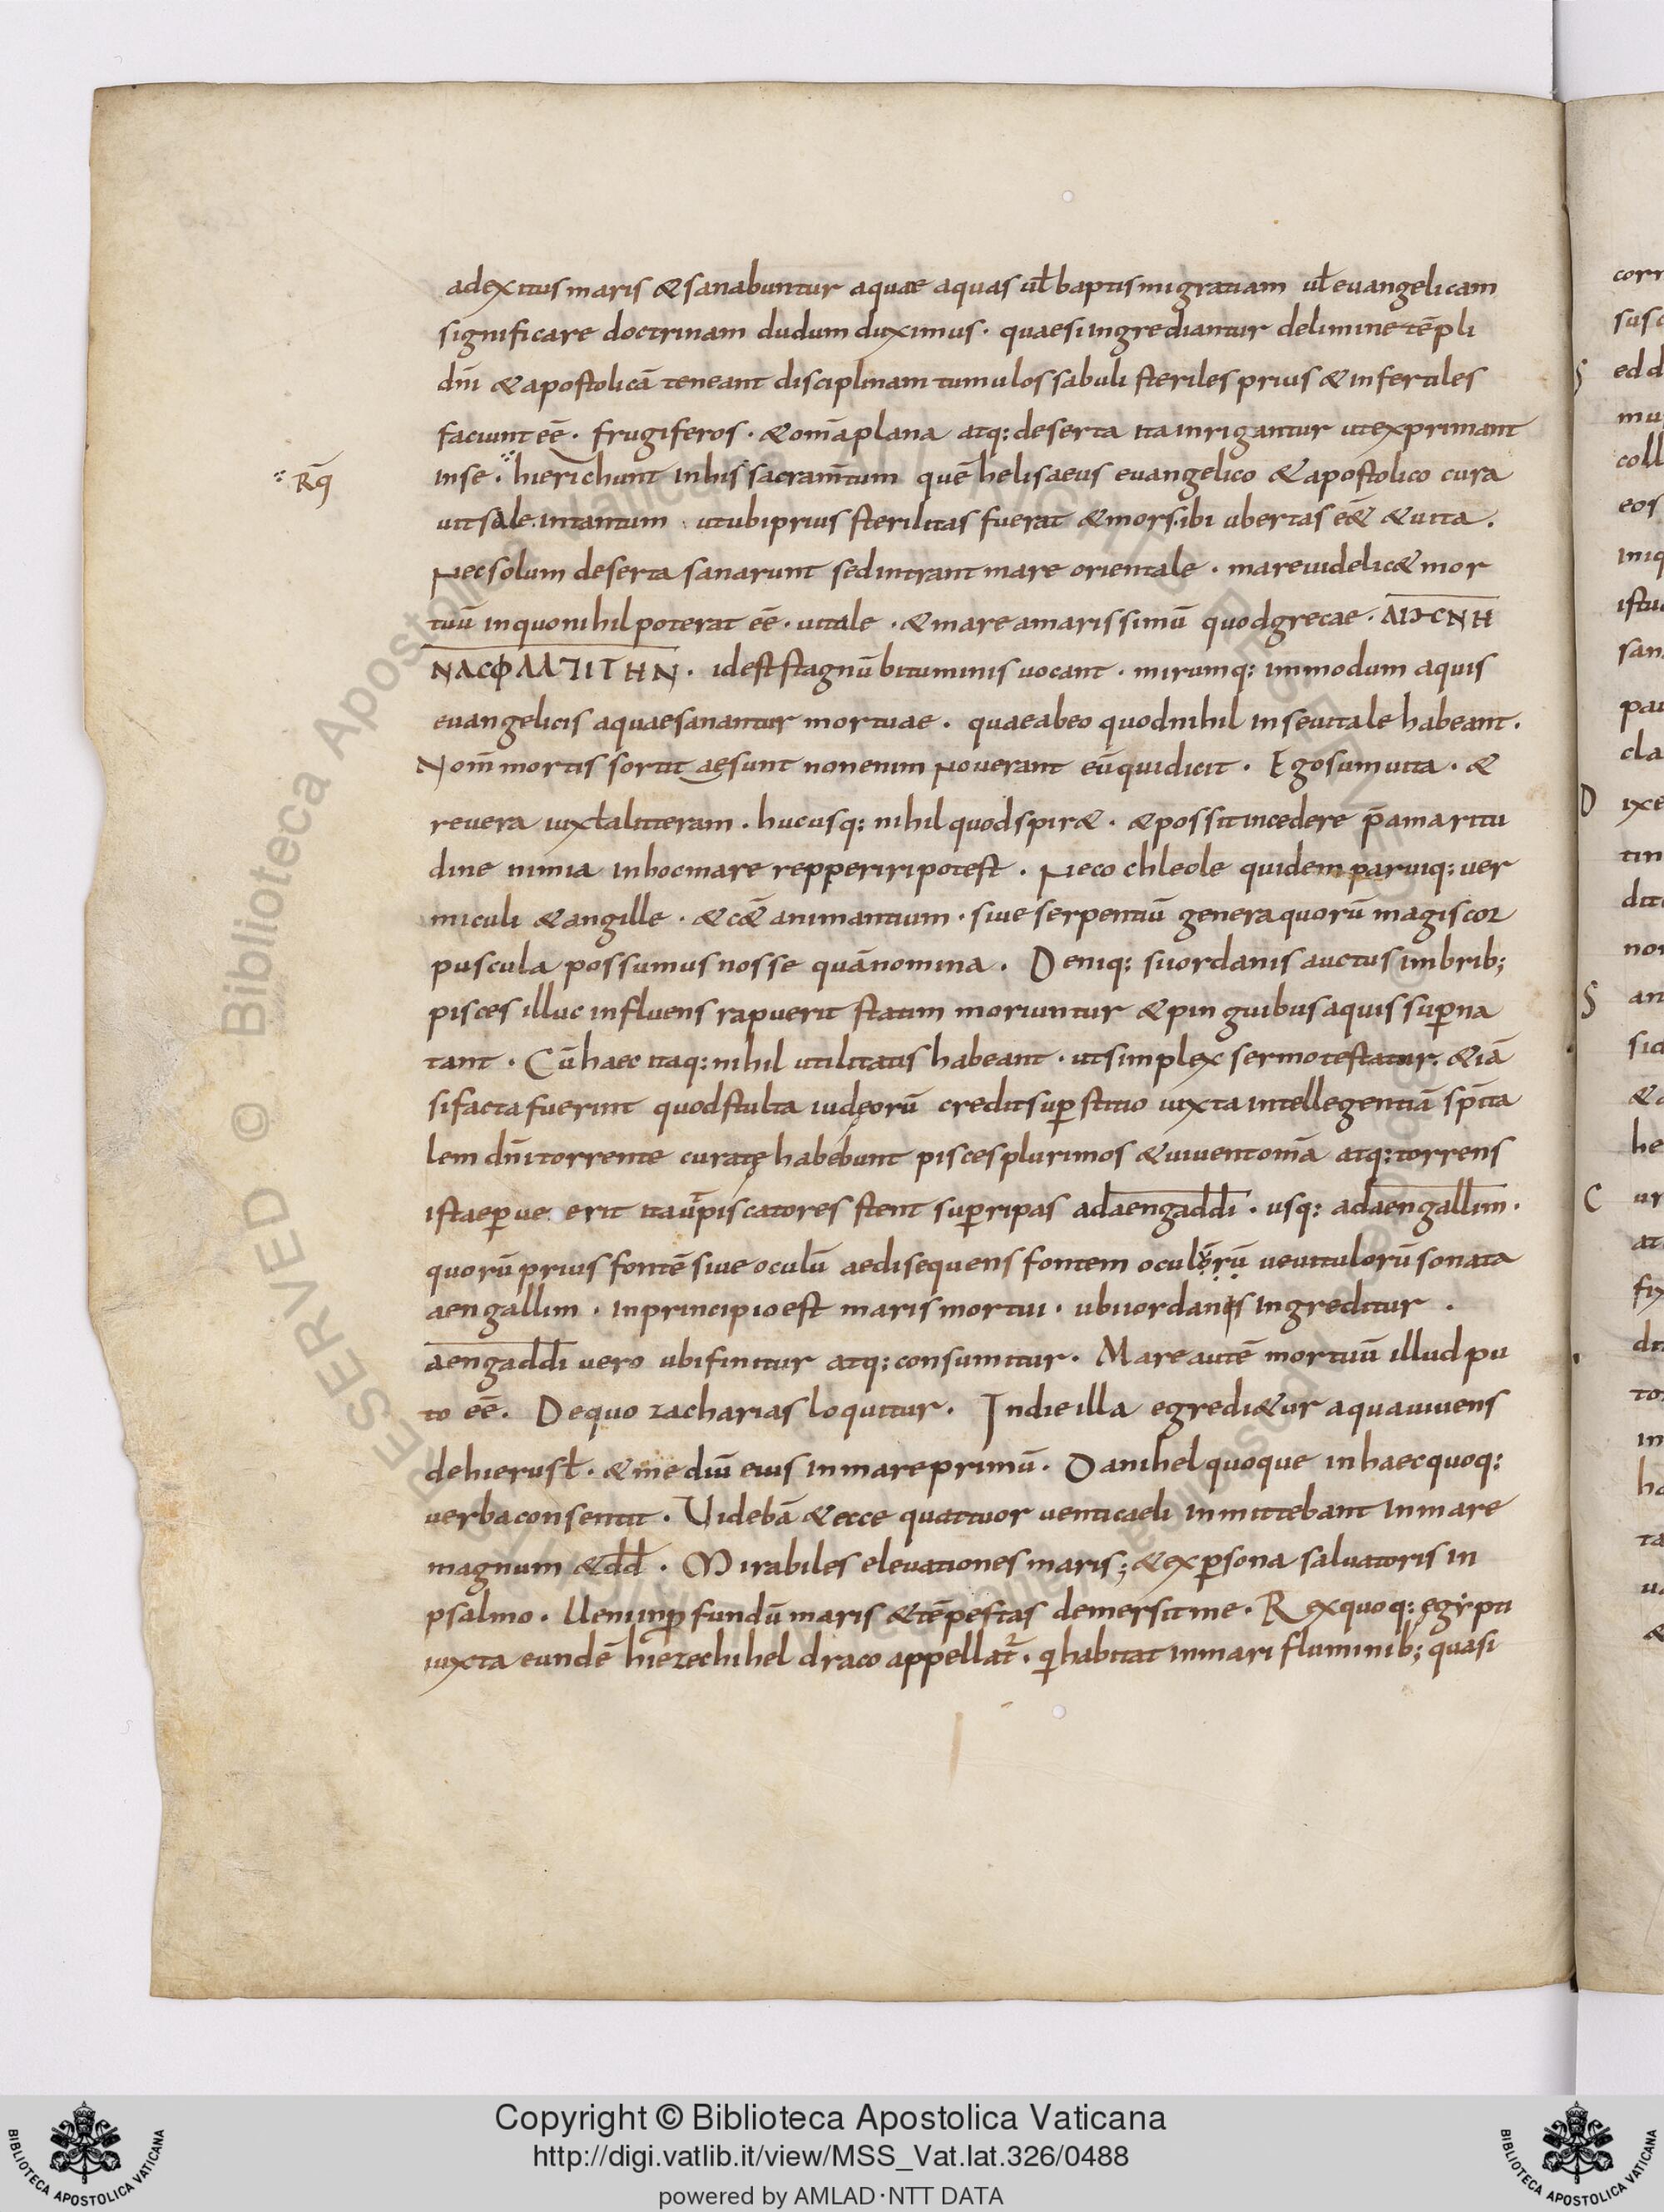 ad exitus maris & sanabuntur aquae aquas ul̄ baptismi gratiam ul̄ euangelicam
significare doctrinam dudum duximus · quae si ingrediantur de limine tēpli
dn̄i & apostolicā teneant disciplinam tumulos sabuli steriles prius & infertiles
faciunt eē · frugiferos · & om̄a plana atq: deserta ita inrigantur ut exprimant
in se · hierichunt in his sacram̄tum quē helisaeus euangelico & apostolico cura
uit sale. in tantum · ut ubi prius sterilitas fuerat & mors. ibi ubertas eē& & uita.
Nec solum deserta sanarunt sed intrant mare orientale · mare uidelic& mor
tuū in quo nihil poterat eē · uitale · & mare amarissimū quod grecae · ΛΙΗϹΝΗ
ΝΑϹΦΑΛΤΙΤΗΝ · id est stagnū bituminis uocant · mirumq: immodum aquis
euangelicis aquae sanantur mortuae · quae ab eo quod nihil in se uitale habeant.
Nom̄ mortis sortitae sunt non enim nouerant eū qui dicit · Ego sum uita · &
reuera iuxta litteram · hucusq: nihil quod spir& · & possit incedere p̄ amaritu
dine nimia in hoc mare repperiri potest · Nec ochleole quidem paruiq: uer
miculi & angille · & c& animantium · siue serpentiū genera quorū magis cor
puscula possumus nosse quā nomina · Deniq: si iordanis auctus imbrib;
pisces illuc influens rapuerit statim moriuntur & pinguibus aquis sup̱na
tant · Cū haec itaq: nihil utilitatis habeant · ut simplex sermo testatur. & iā
si facta fuerint quod stulta iudęorū credit sup̱stitio iuxta intellegentiā sp̄ita
lem dn̄i torrente curatę habebunt pisces plurimos & uiuent om̄a atq: torrens
ista p̱uenerit ita ut piscatores stent sup̱ ripas ad aengaddi · usq: ad aengallim ·
quorū prius fontē siue oculū aedi sequens fontem oculorū ue uitulorū sonat a
aengallim · in principio est maris mortui · ubi iordanis ingreditur ·
aengaddi uero ubi finitur atq: consumitur · Mare autē mortuū illud pu
to eē · De quo zacharias loquitur · In die illa egredi&ur aqua uiuens
de hierusl̄ · & mediū eius in mare primū · Danihel quoque in haec quoq:
uerba consentit · Uidebā & ecce quattuor uenti caeli inmittebant in mare
magnum & dd̄ · Mirabiles eleuationes maris; & ex p̱sona saluatoris in
psalmo · Ueni in p̱fundū maris & tēpestas demersit me · Rex quoq: egẏpti
iuxta eundē hiezechihel draco appellat̄ · qi habitat in mari fluminib; quasi
Rq̄
Copyright © Biblioteca Apostolica Vaticana
http://digi.vatlib.it/view/MSS_Vat.lat.326/0488
powered by AMLAD·NTT DATA
BIBLIOTECA APOSTOLICA VATICANA
BIBLIOTECA APOSTOLICA VATICANA